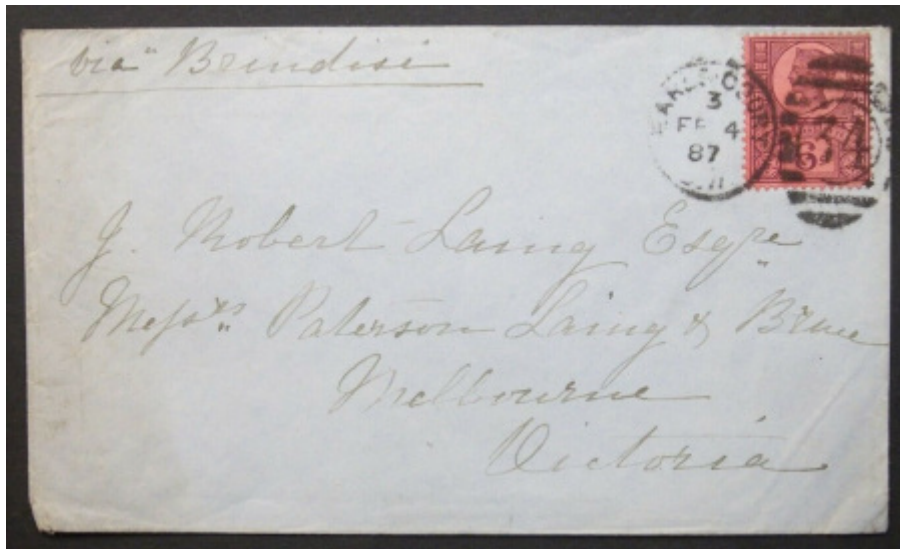 via Brindisi
EARLS COURT
3
FE 4
87
6
J. Robert Laing Esqre
Messrs Paterson Laing & Bruce
Melbourne
Victoria